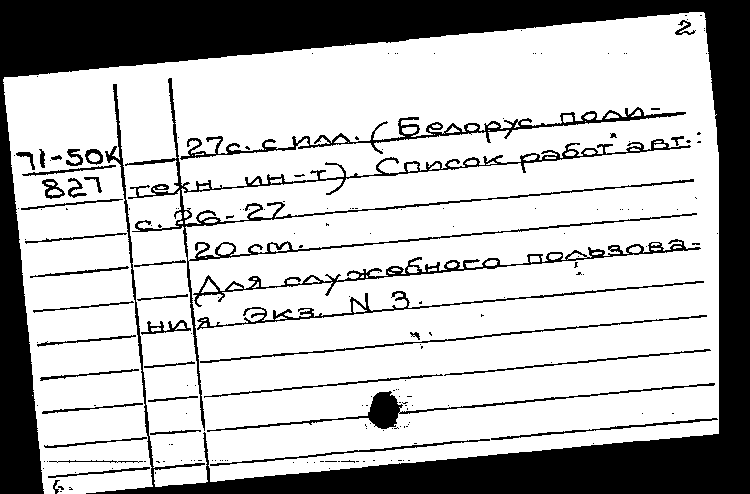 2
71-50К
827
27с. с илл. (Белорус. поли-
техн. ин-т). Список работ авт.:
с. 26-27.
20 cm.
Для служебного пользова-
ния. Экз. N 3.
б.